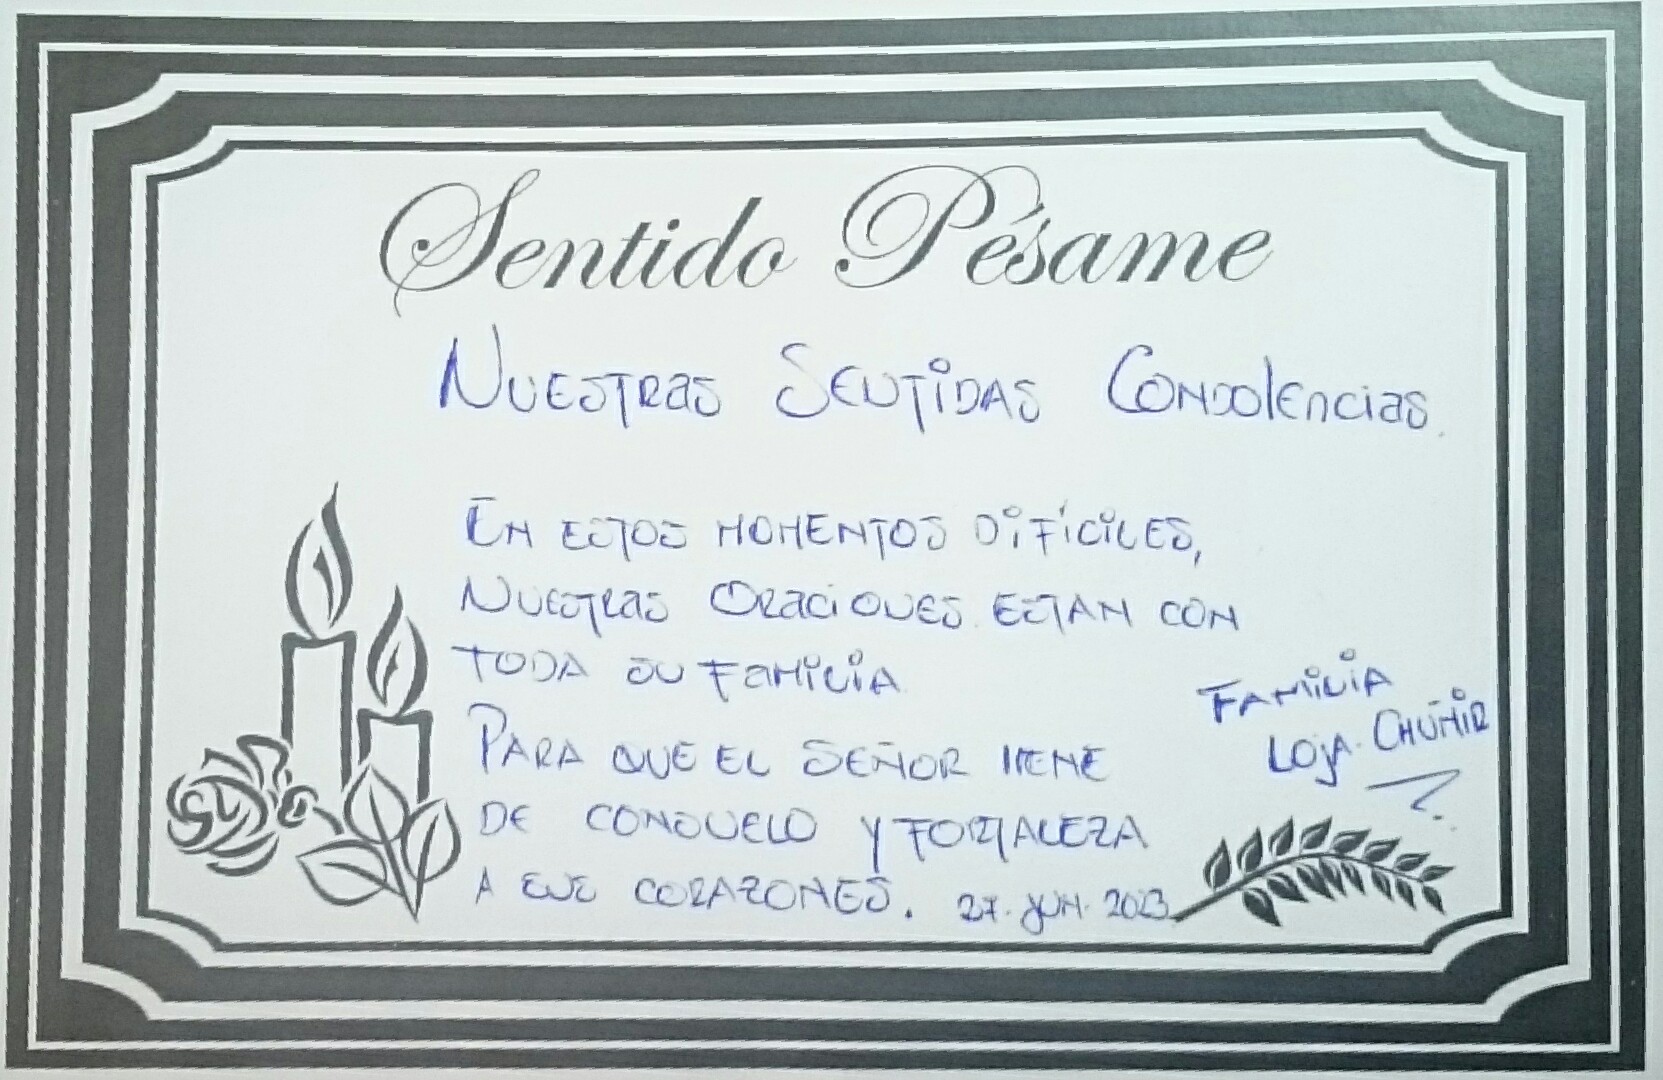 Sentido Pésame
NUESTRAS SENTIDAS CONDOLENCIAS.
EN ESTOS MOMENTOS DIFÍCILES,
NUESTRAS ORACIONES ESTAN CON
TODA SU FAMILIA
PARA QUE EL SEÑOR LLENE
DE CONSUELO Y FORTALEZA
A SUS CORAZONES. 27. JUN. 2023
FAMILIA
LOJA. CHUÑIR